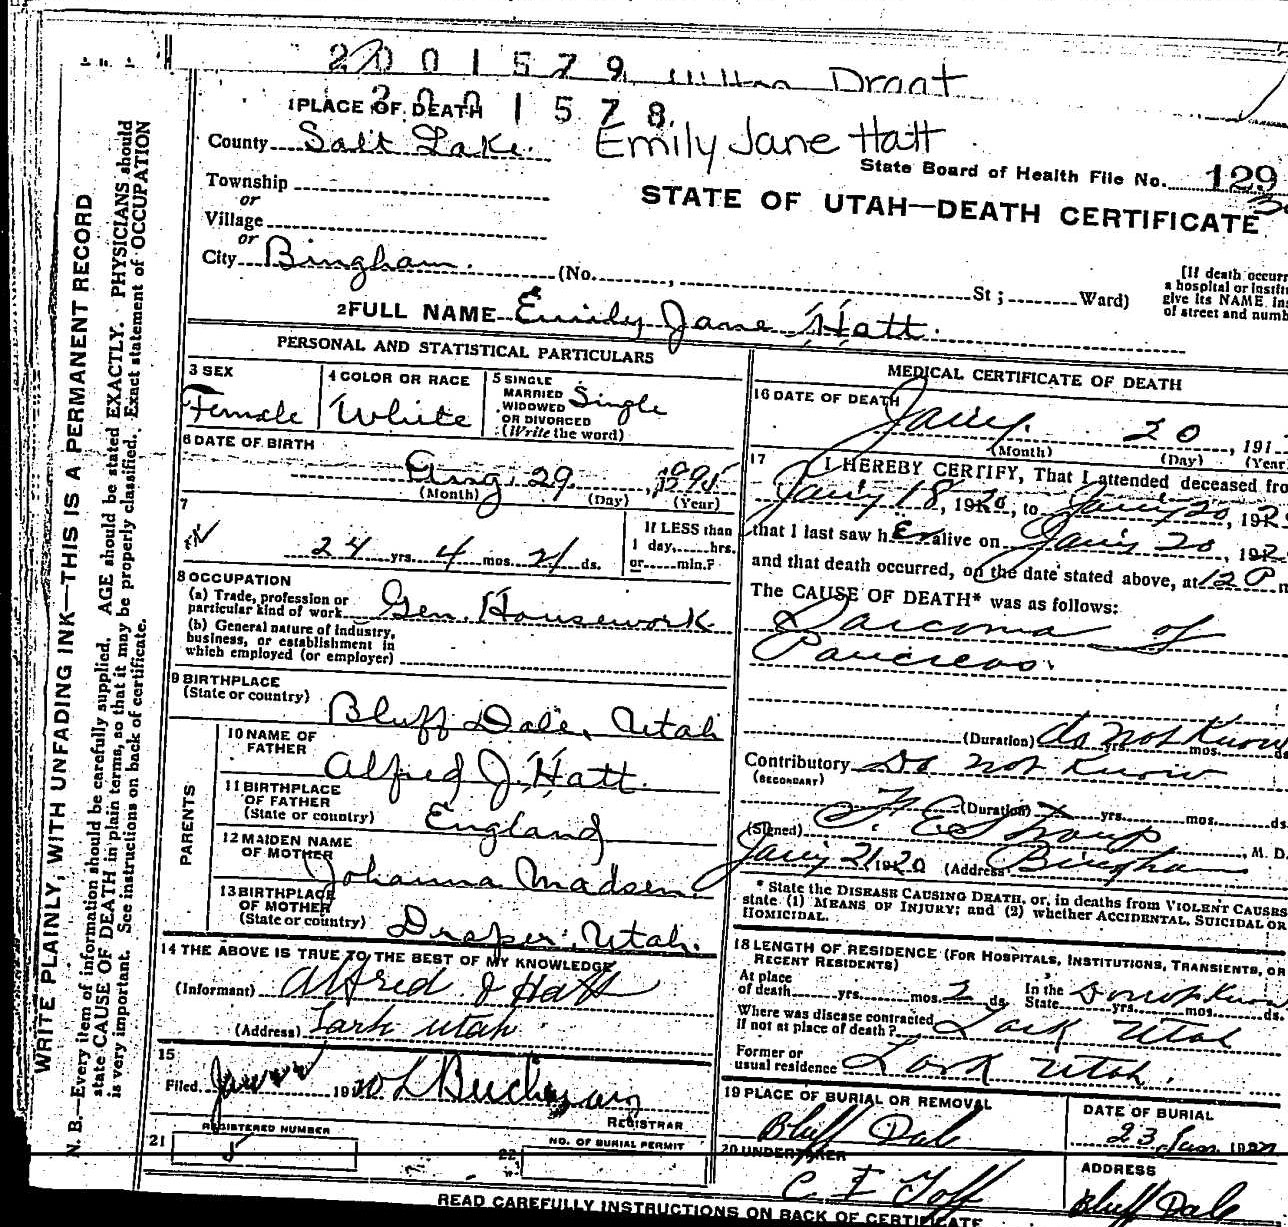 2001579 Draat
1 PLACE OF DEATH 2001578.
County Salt Lake. Emily Jane Hatt
State Board of Health File No. 129
Township
or
STATE OF UTAH—DEATH CERTIFICATE
Village
or
City Bingham. (No. , St ; Ward)
[If death occurr
a hospital or institu
give its NAME, ins
of street and numb
2 FULL NAME Emily Jane Hatt.
PERSONAL AND STATISTICAL PARTICULARS
3 SEX
Female
4 COLOR OR RACE
White
5 SINGLE
MARRIED
WIDOWED
OR DIVORCED
(Write the word)
Single
6 DATE OF BIRTH
Aug. 29. , 1895
(Month) (Day) (Year)
7
24 yrs. 4 mos. 21 ds.
If LESS than
1 day, hrs.
or min.?
8 OCCUPATION
(a) Trade, profession or
particular kind of work Gen. Housework
(b) General nature of industry,
business, or establishment in
which employed (or employer)
9 BIRTHPLACE
(State or country)
Bluff Dale, Utah
PARENTS
10 NAME OF
FATHER
Alfred J. Hatt.
11 BIRTHPLACE
OF FATHER
(State or country)
England
12 MAIDEN NAME
OF MOTHER
Johanna Madsen.
13 BIRTHPLACE
OF MOTHER
(State or country)
Draper, Utah.
14 THE ABOVE IS TRUE TO THE BEST OF MY KNOWLEDGE
(Informant) Alfred J Hatt
(Address) Lark Utah
15
Filed 19
REGISTRAR
REGISTERED NUMBER
21 5
NO. OF BURIAL PERMIT
22
MEDICAL CERTIFICATE OF DEATH
16 DATE OF DEATH
Jany. 20 , 191
(Month) (Day) (Year
17
I HEREBY CERTIFY, That I attended deceased fro
Jany 18, 1920, to Jany 20, 192
that I last saw her alive on Jany 20, 192
and that death occurred, on the date stated above, at 12 P m
The CAUSE OF DEATH* was as follows:
Sarcoma of
Pancreas.
(Duration) do not Know yrs. mos. ds
Contributory Do not Know
(SECONDARY)
(Duration) yrs. mos. ds.
(Signed) , M. D.
Jany 21, 1920 (Address) Bingham
* State the DISEASE CAUSING DEATH, or, in deaths from VIOLENT CAUSES
state (1) MEANS OF INJURY; and (2) whether ACCIDENTAL, SUICIDAL OR
HOMICIDAL.
18 LENGTH OF RESIDENCE (FOR HOSPITALS, INSTITUTIONS, TRANSIENTS, OR
RECENT RESIDENTS)
At place
of death yrs. mos. 2 ds.
In the
State Do not Know yrs. mos. ds.
Where was disease contracted
if not at place of death? Lark Utah
Former or
usual residence Lark Utah.
19 PLACE OF BURIAL OR REMOVAL
Bluff Dale
DATE OF BURIAL
23 Jan. 1920
20 UNDERTAKER
C E Goff
ADDRESS
Bluff Dale
READ CAREFULLY INSTRUCTIONS ON BACK OF CERTIFICATE
WRITE PLAINLY, WITH UNFADING INK—THIS IS A PERMANENT RECORD
N. B.—Every item of information should be carefully supplied. AGE should be stated EXACTLY. PHYSICIANS should
state CAUSE OF DEATH in plain terms, so that it may be properly classified. Exact statement of OCCUPATION
is very important. See instructions on back of certificate.